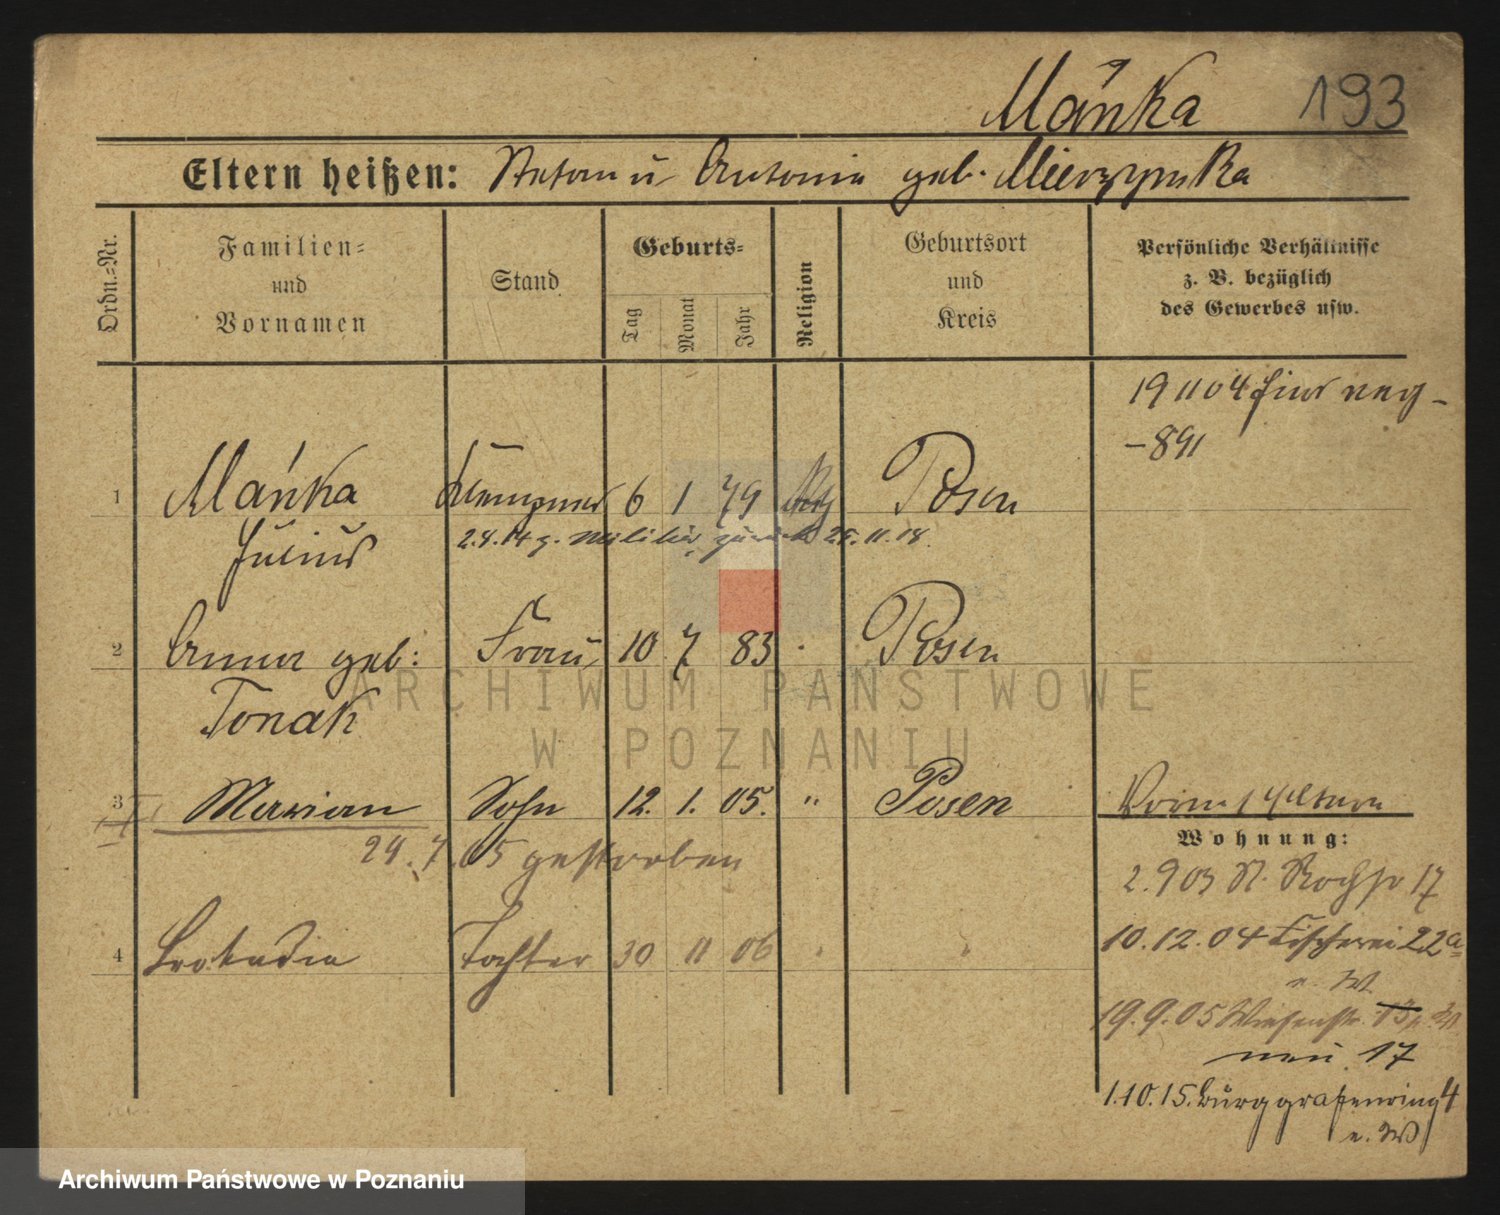 Mańka 193
Eltern heißen: Stefan u Antonie geb. Mierzynska
Ordn.-Nr.
Familien-
und
Vornamen
Stand
Geburts-
Tag
Monat
Jahr
Religion
Geburtsort
und
Kreis
Persönliche Verhältnisse
z. B. bezüglich
des Gewerbes usw.
19 11 04 hier
-891
1 Mańka Klempner 6 1 79 kth Posen
Julius 2.8.14 z. Militär, zurück 25.11.18.
2 Anna geb: Frau 10 7 83 Posen
Tonak
3 Marian Sohn 12. 1. 05. " Posen
24.7.05 gestorben
Wohnung:
2.9 03 St. Rochstr 17
4 Leokadia Tochter 30 11 06
10.12.04 Fischerei 22a
n. W.
19.9.05 Wiesenstr. 13
neu 17
1.10.15. Burggrafenring 4
n. W
ARCHIWUM PAŃSTWOWE
W POZNANIU
Archiwum Państwowe w Poznaniu